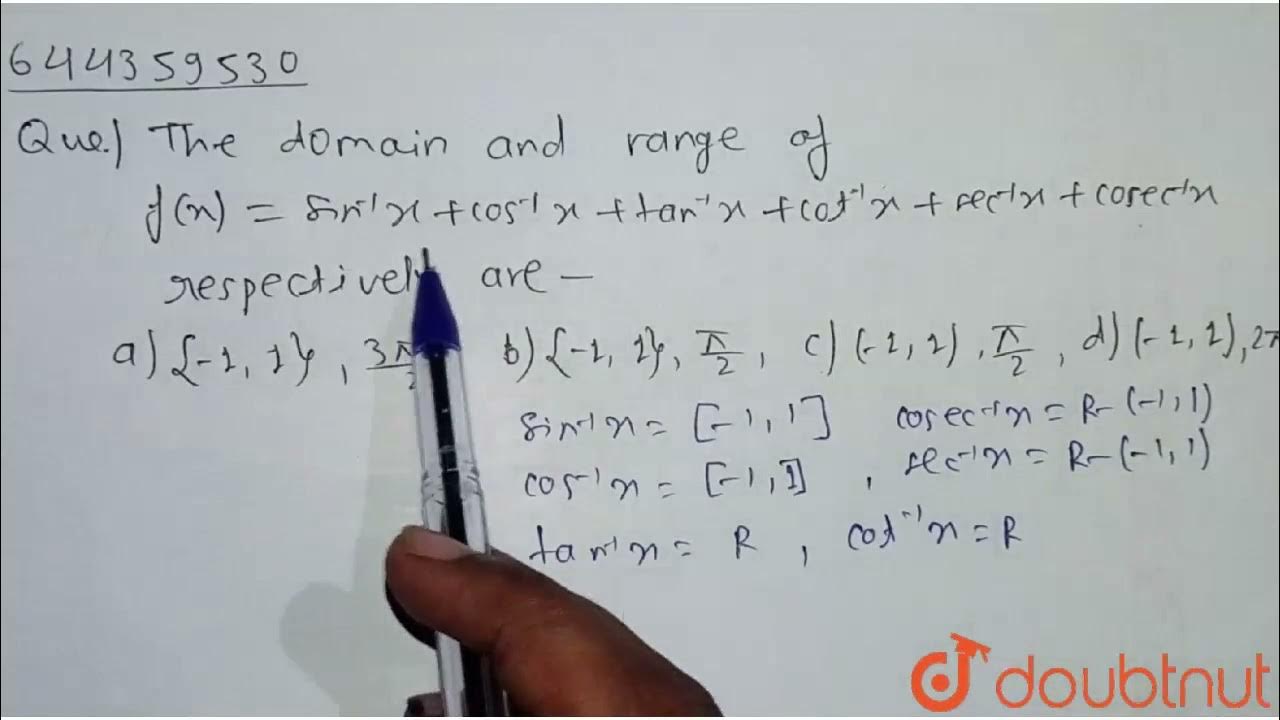 644359530
Que.) The domain and range of
f(x) = sin⁻¹x + cos⁻¹x + tan⁻¹x + cot⁻¹x + sec⁻¹x + cosec⁻¹x
respectively are –
a) {-1, 1}, 3π b) {-1, 1}, π/2, c) (-1, 1), π/2, d) (-1, 1), 2π
sin⁻¹x = [-1, 1] cosec⁻¹x = R-(-1, 1)
cos⁻¹x = [-1, 1] , sec⁻¹x = R-(-1, 1)
tan⁻¹x = R , cot⁻¹x = R
doubtnut